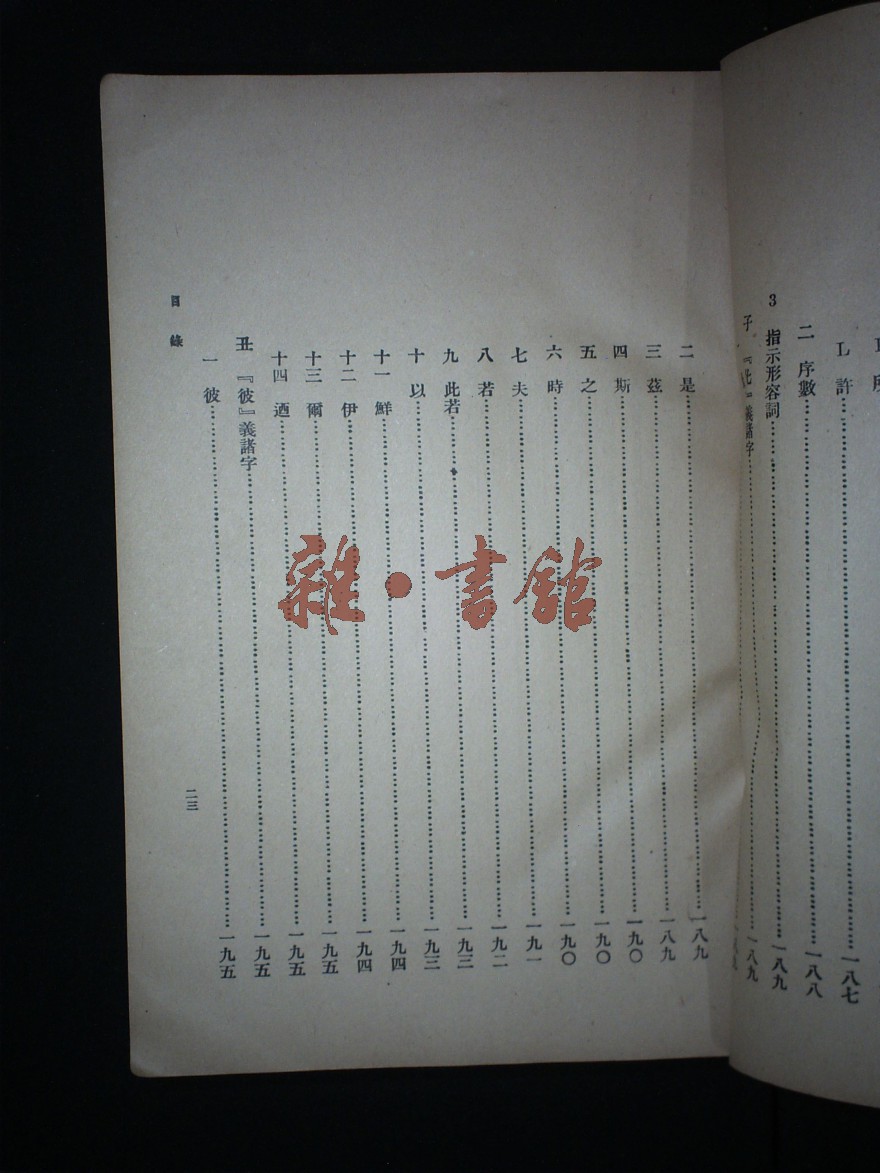 L 許……一八七
二 序數……一八八
3 指示形容詞……一八九
子 『此』義諸字……一八九
二 是……一八九
三 茲……一八九
四 斯……一九〇
五 之……一九〇
六 時……一九〇
七 夫……一九一
八 若……一九二
九 此若……一九三
十 以……一九三
十一 鮮……一九四
十二 伊……一九四
十三 爾……一九五
十四 迺……一九五
丑 『彼』義諸字……一九五
一 彼……一九五
目錄
二三
雜·書館